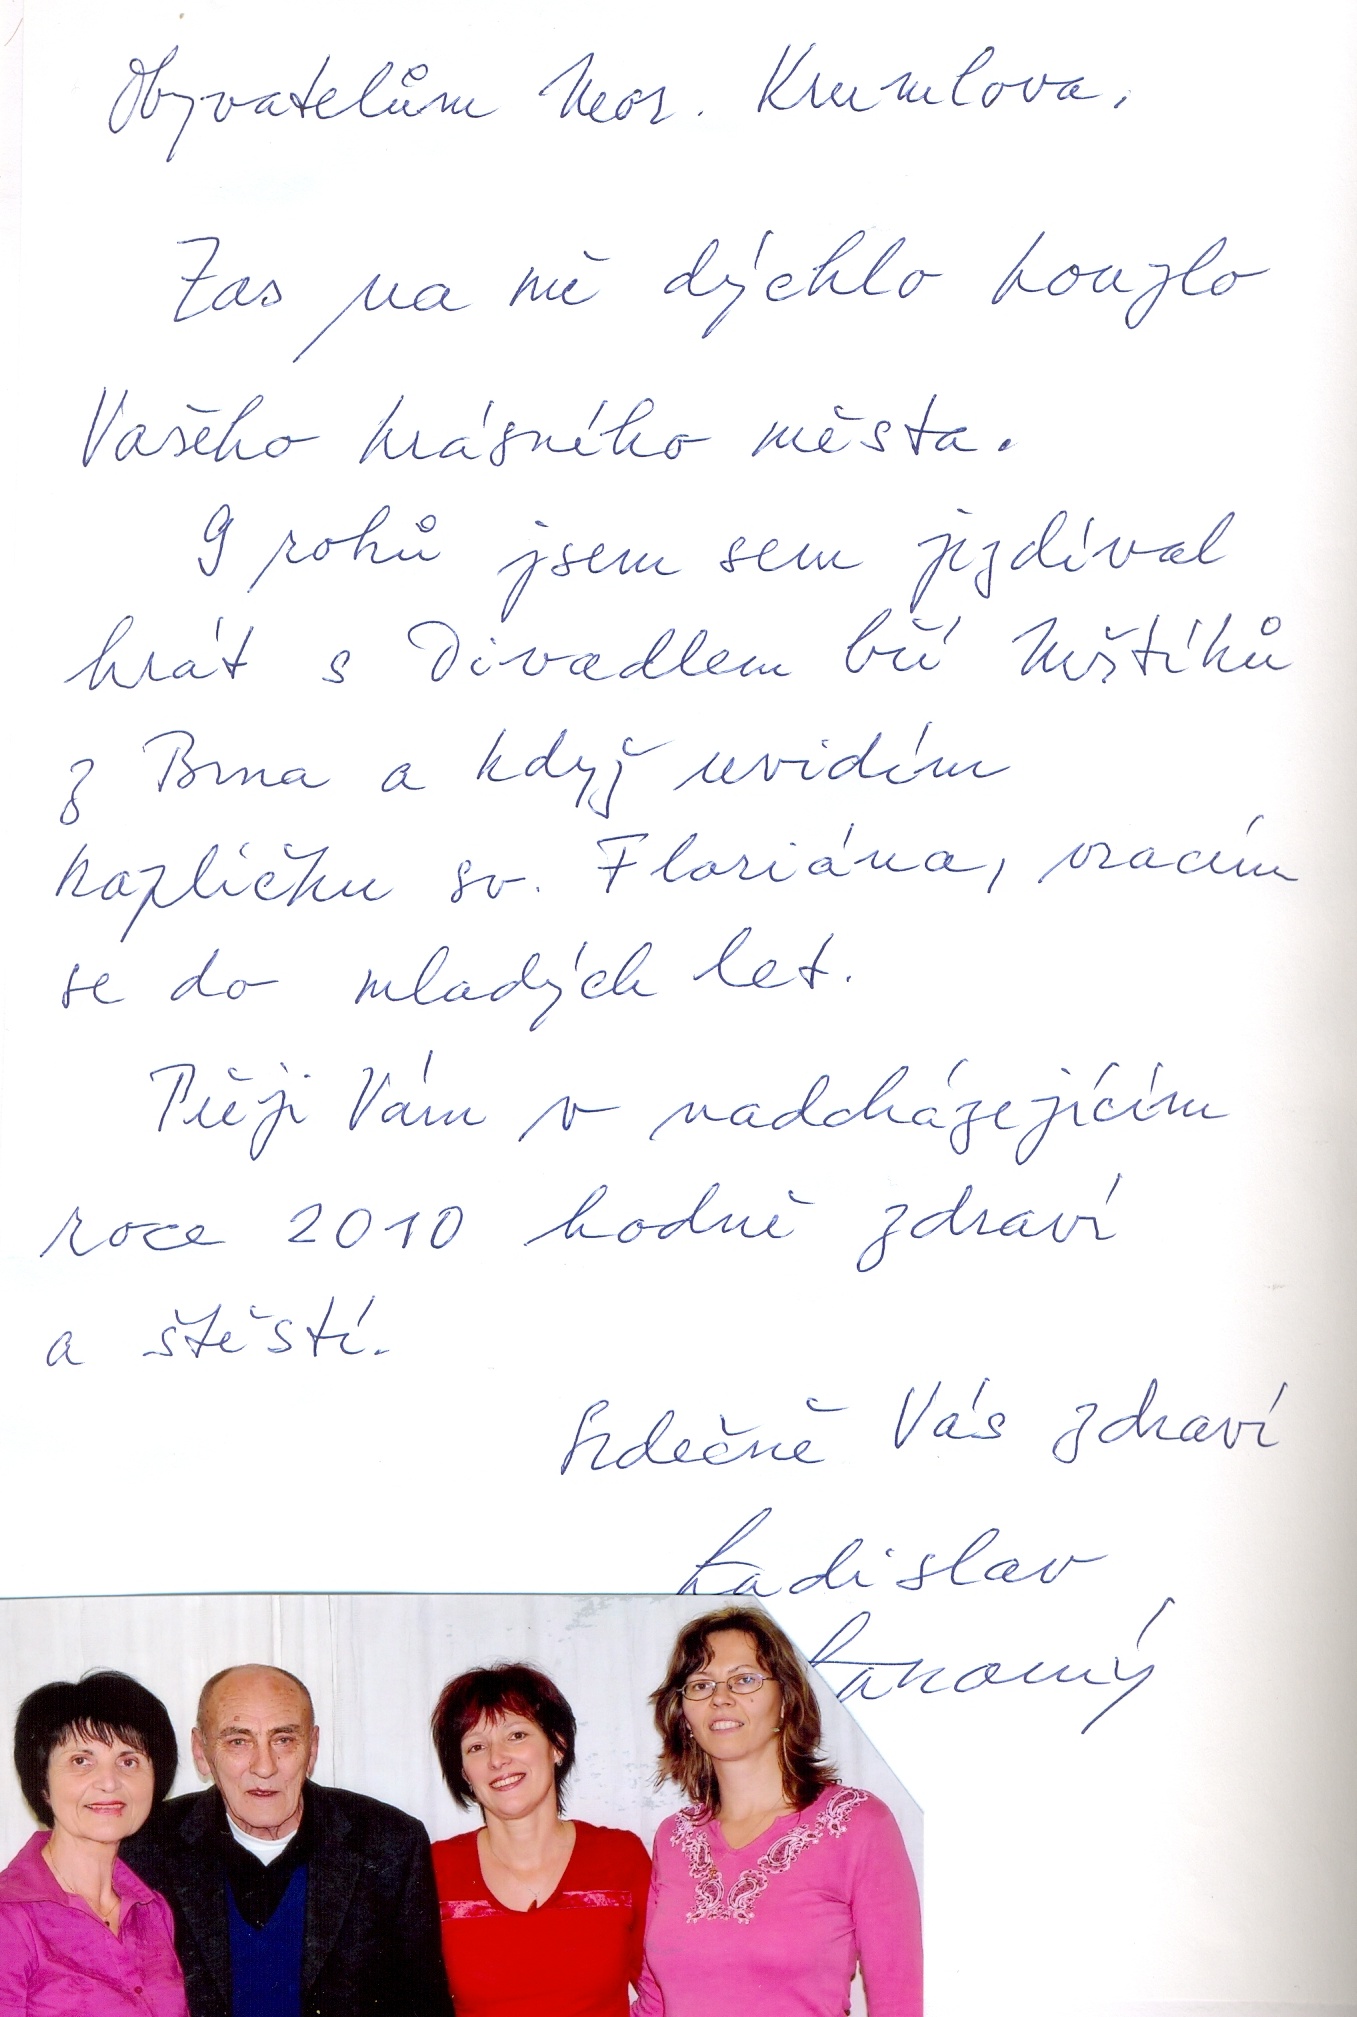 Obyvatelům Mor. Krumlova.
Zas na mě dýchlo kouzlo
Vašeho krásného města.
9 roků jsem sem jizdíval
hrát s Divadlem bří Mrštíků
z Brna a když uvidím
kapličku sv. Floriána, vracím
se do mladých let.
Přeji Vám v nadcházejícím
roce 2010 hodně zdraví
a štěstí.
Srdečně Vás zdraví
Ladislav
Lakomý